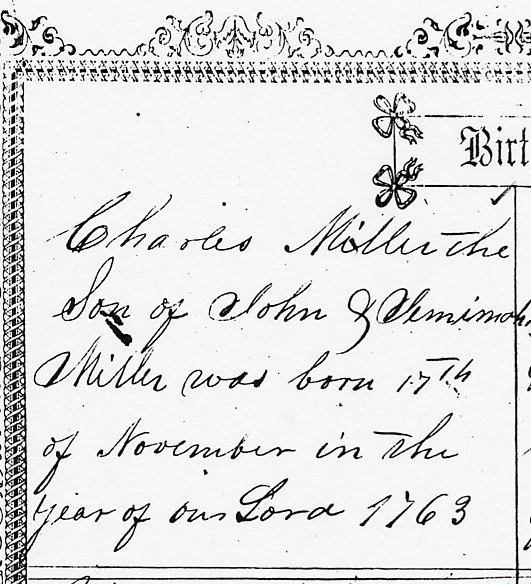 Birt
Charles Miller the
Son of John & Jemimah
Miller was born 17th
of November in the
year of our Lord 1763